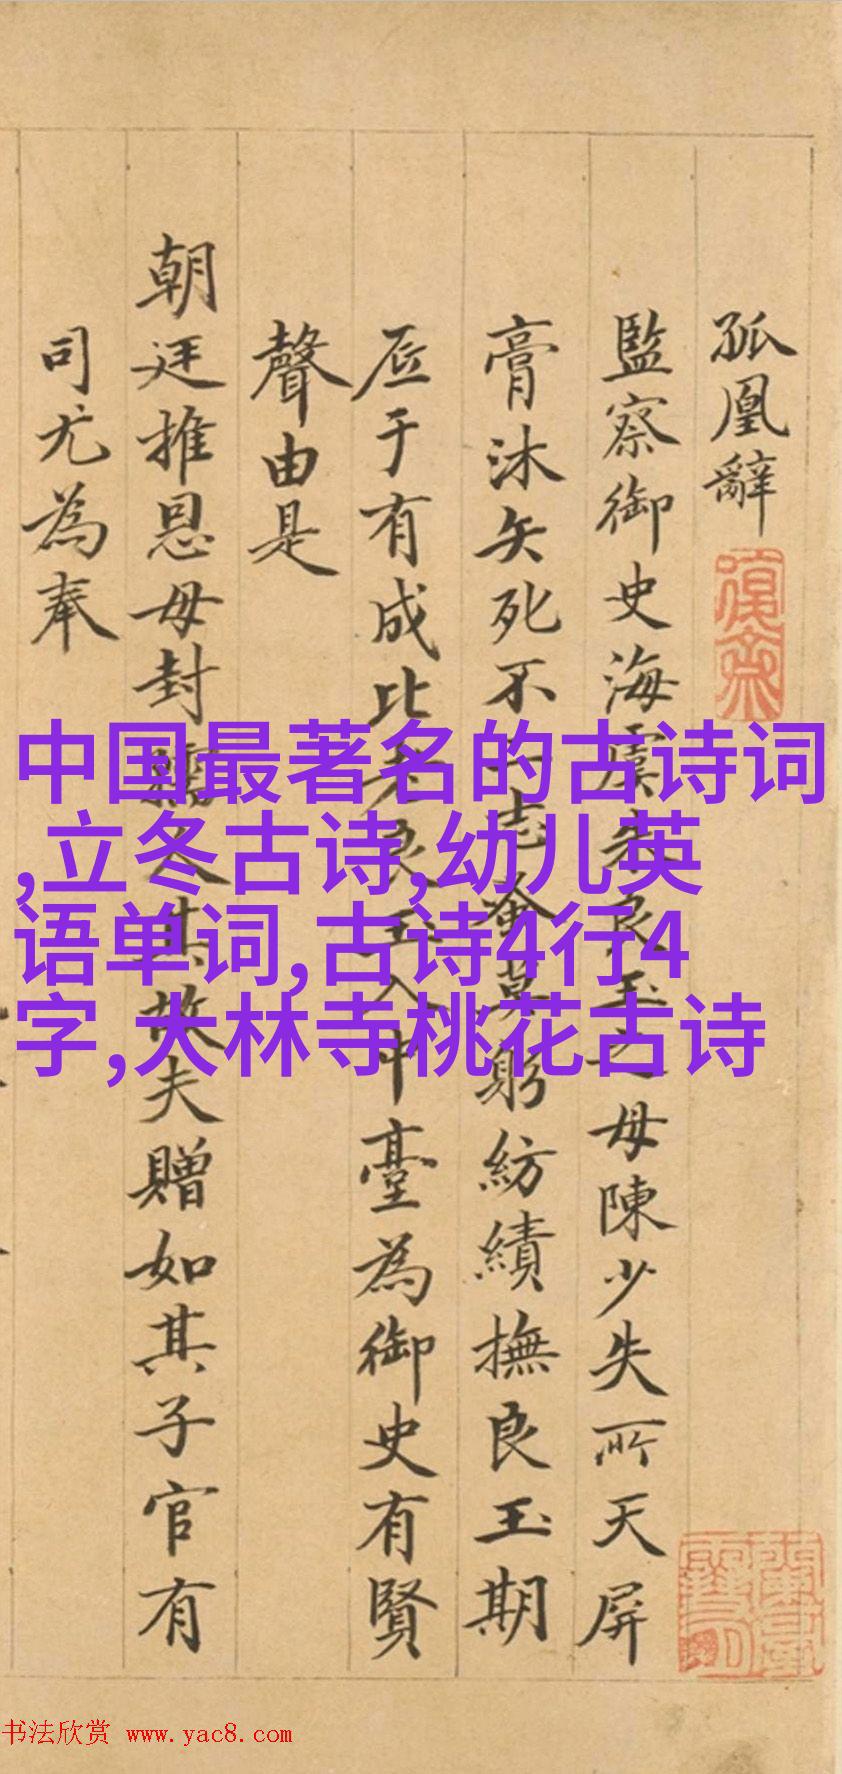 孤凰辭
監察御史海虞朱良玉之母陳少失所天屏
膏沐矢死不二志蚤莫躬紡績撫良玉期
厎于有成比者良玉入中臺為御史有賢
聲由是
朝廷推恩母封孺人其故夫贈如其子官有
司尤為奉
中国最著名的古诗词
,立冬古诗,幼儿英
语单词,古诗4行4
字,大林寺桃花古诗
书法欣赏 www.yac8.com